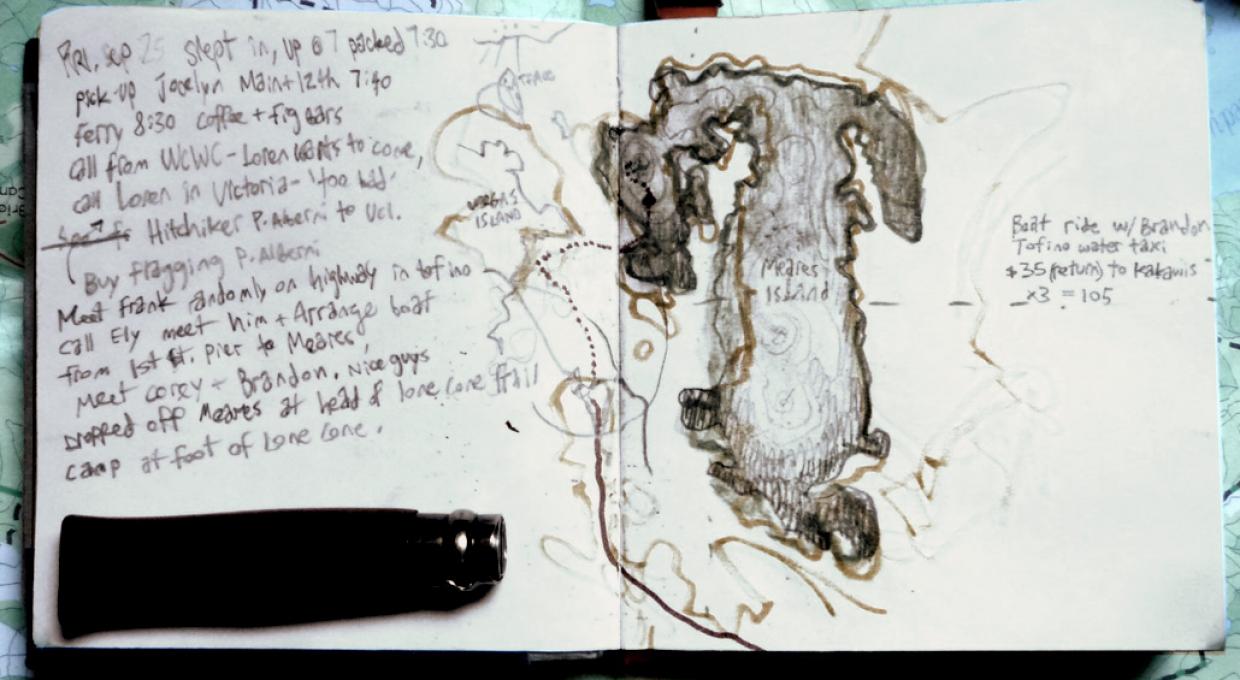 Fri, Sep 25 slept in, up @ 7 packed 7:30
pick-up Jocelyn Main+12th 7:40
ferry 8:30 coffee + fig bars
call from WCWC - Loren wants to come,
call Loren in Victoria - 'too bad'
Hitchiker P. Alberni to Ucl.
Buy flagging P. Alberni
Meet Frank randomly on highway in tofino
call Ely meet him + Arrange boat
from 1st St. Pier to Meares,
Meet Corey + Brandon. Nice guys
Dropped off Meares at head of lone cone trail
camp at foot of Lone Cone.
VARGAS
ISLAND
Meares
Island
Boat ride w/ Brandon
Tofino water taxi
$35 (return) to Kakawis
x3 = 105